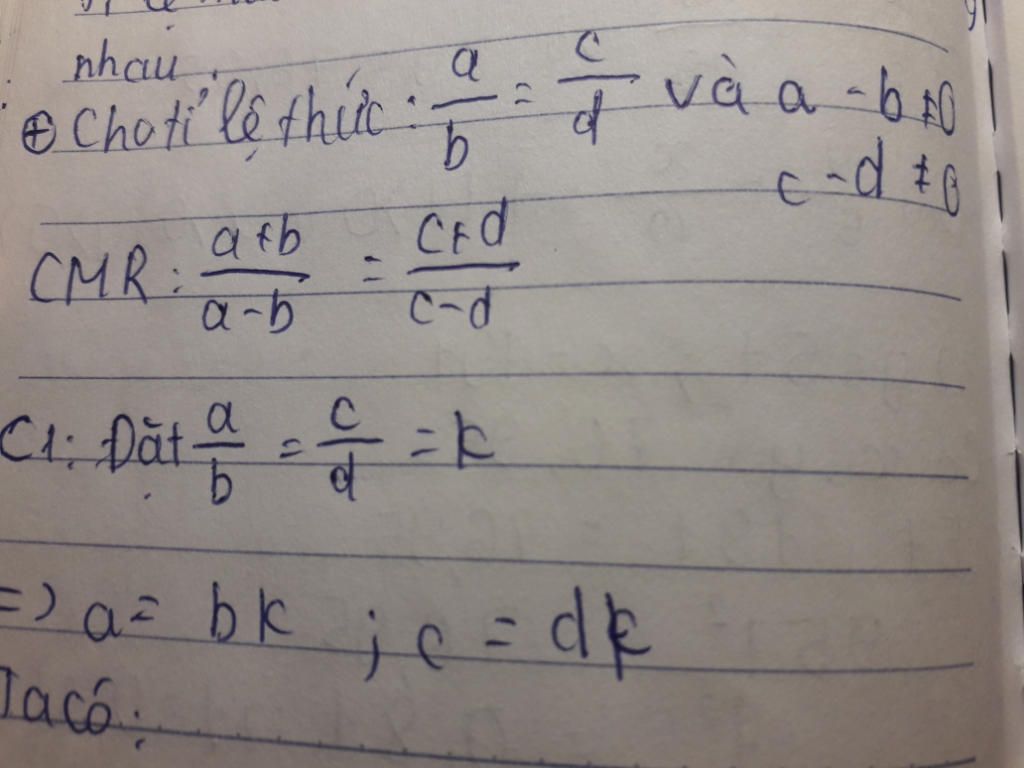 nhau.
⊕ Cho tỉ lệ thức: a/b = c/d và a - b ≠ 0
c - d ≠ 0
CMR: a+b/a-b = c+d/c-d
C1: Đặt a/b = c/d = k
=> a = bk ; c = dk
Ta có: